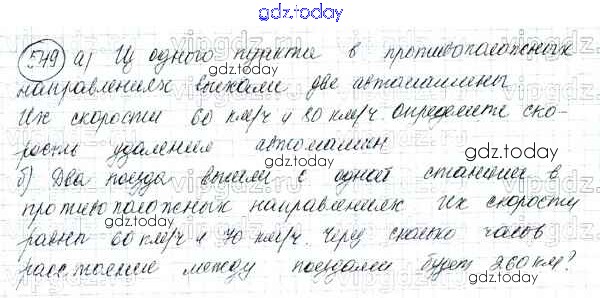 gdz.today
549 а) Из одного пункта в противоположных
направлениях выехали две автомашины
Их скорости 60 км/ч и 80 км/ч. Определите ско-
рость удаления автомашин
б) Два поезда вышли с одной станции в
противоположных направлениях Их скорости
равны 60 км/ч и 70 км/ч. Через сколько часов
расстояние между поездами будет 260 км?